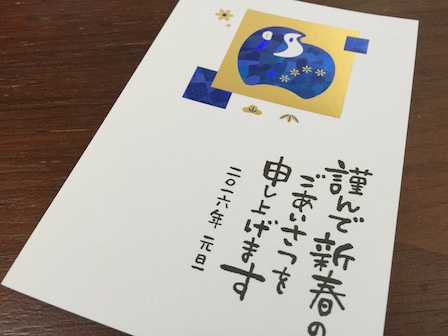 謹んで新春の
ごあいさつを
申し上げます
二〇一六年 元旦